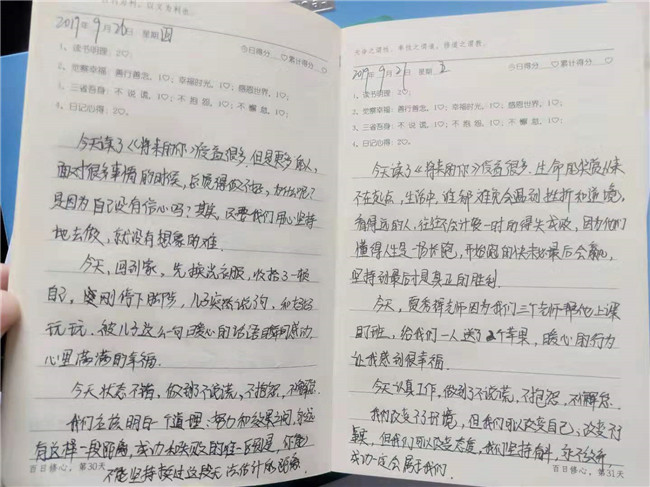 2019年9月26日 星期四
今日得分 ♡累计得分 ♡
1、读书明理：2♡；
2、觉察幸福：善行善念，1♡；幸福时光，1♡；感恩世界，1♡；
3、三省吾身：不说谎，1♡；不抱怨，1♡；不懈怠，1♡；
4、日记心得：2♡。
今天读了《将来的你》受益很多，但是更多的人，
面对很多事情的时候，总觉得做不好，为什么呢？
是因为自己没有信心吗？其实，只要我们用心坚持
地去做，就没有想象的难.
今天，回到家，先换洗衣服，收拾了一顿
自己，刚停下脚步，儿子突然说妈，和
玩玩，被儿子这么一句暖心的话语瞬间感动
心里满满的幸福.
今天状态不错，做到不说谎，不抱怨，不懈怠.
我们应该明白一个道理：努力和效果之间，永远
有这样一段距离，成功和失败的唯一区别是，你能
不能坚持度过这段无法估计的距离.
百日修心，第30天
天命之谓性，率性之谓道，修道之谓教。
2019年9月27日 星期五
今日得分 ♡累计得分 ♡
1、读书明理：2♡；
2、觉察幸福：善行善念，1♡；幸福时光，1♡；感恩世界，1♡；
3、三省吾身：不说谎，1♡；不抱怨，1♡；不懈怠，1♡；
4、日记心得：2♡。
今天读了《将来的你》受益很多，生命的奖赏从来
不在起点，生活中，谁都难免会遇到挫折和逆境，
看得远的人，往往不会计较一时的得失成败，因为他们
懂得人生是一场长跑，开始跑的快未必最后会赢，
坚持到最后才是真正的胜利.
今天，老师因为我们三个老师帮他上课
盯班，给我们一人送了2个苹果，暖心的行为
让我感到很幸福.
今天认真工作，做到了不说谎，不抱怨，不懈怠.
我们改变不了环境，但我们可以改变自己，改变不了
事实，但我们可以改变态度，我们坚持奋斗，永不放弃，
成功一定会属于我们.
百日修心，第31天